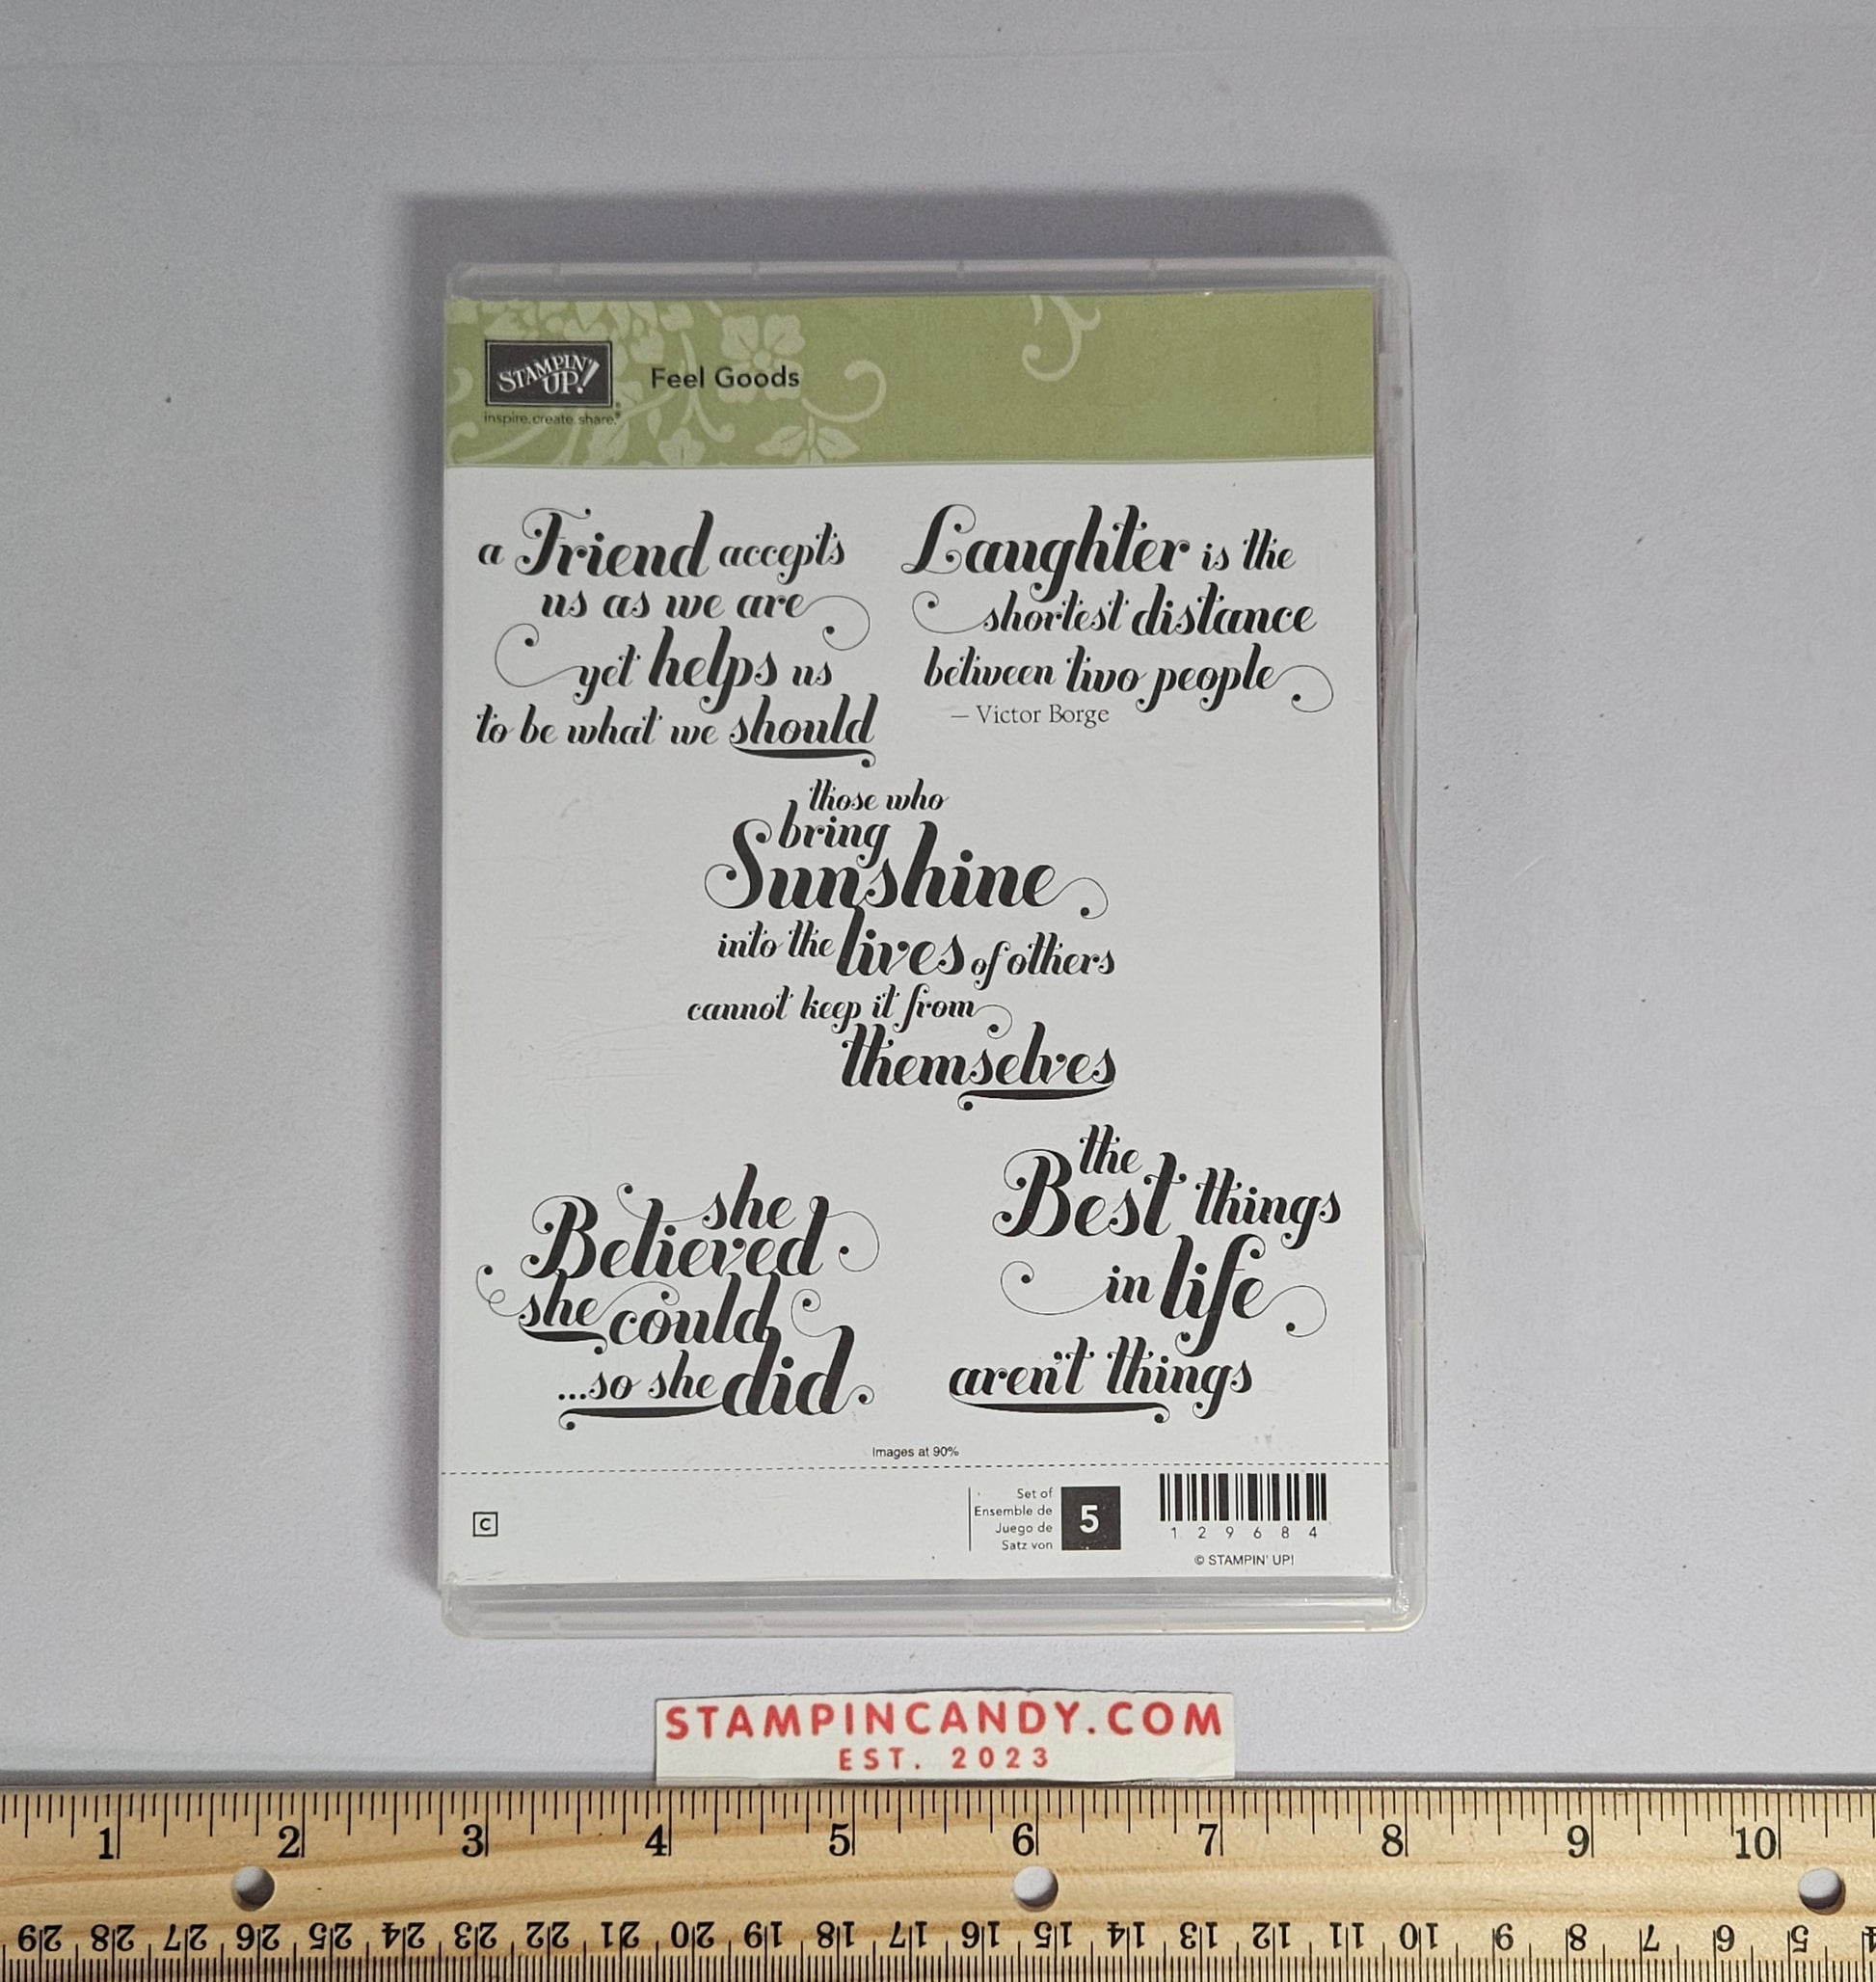 STAMPIN' UP!
inspire.create.share.®
Feel Goods
a Friend accepts
us as we are
yet helps us
to be what we should
Laughter is the
shortest distance
between two people
– Victor Borge
those who
bring
Sunshine
into the lives of others
cannot keep it from
themselves
she
Believed
she could
...so she did.
the
Best things
in life
aren't things
Images at 90%
C
Set of
Ensemble de
Juego de
Satz von
5
129684
© STAMPIN' UP!
STAMPINCANDY.COM
EST. 2023
1 2 3 4 5 6 7 8 9 10
29 28 27 26 25 24 23 22 21 20 19 18 17 16 15 14 13 12 11 10 9 8 7 6 5 4